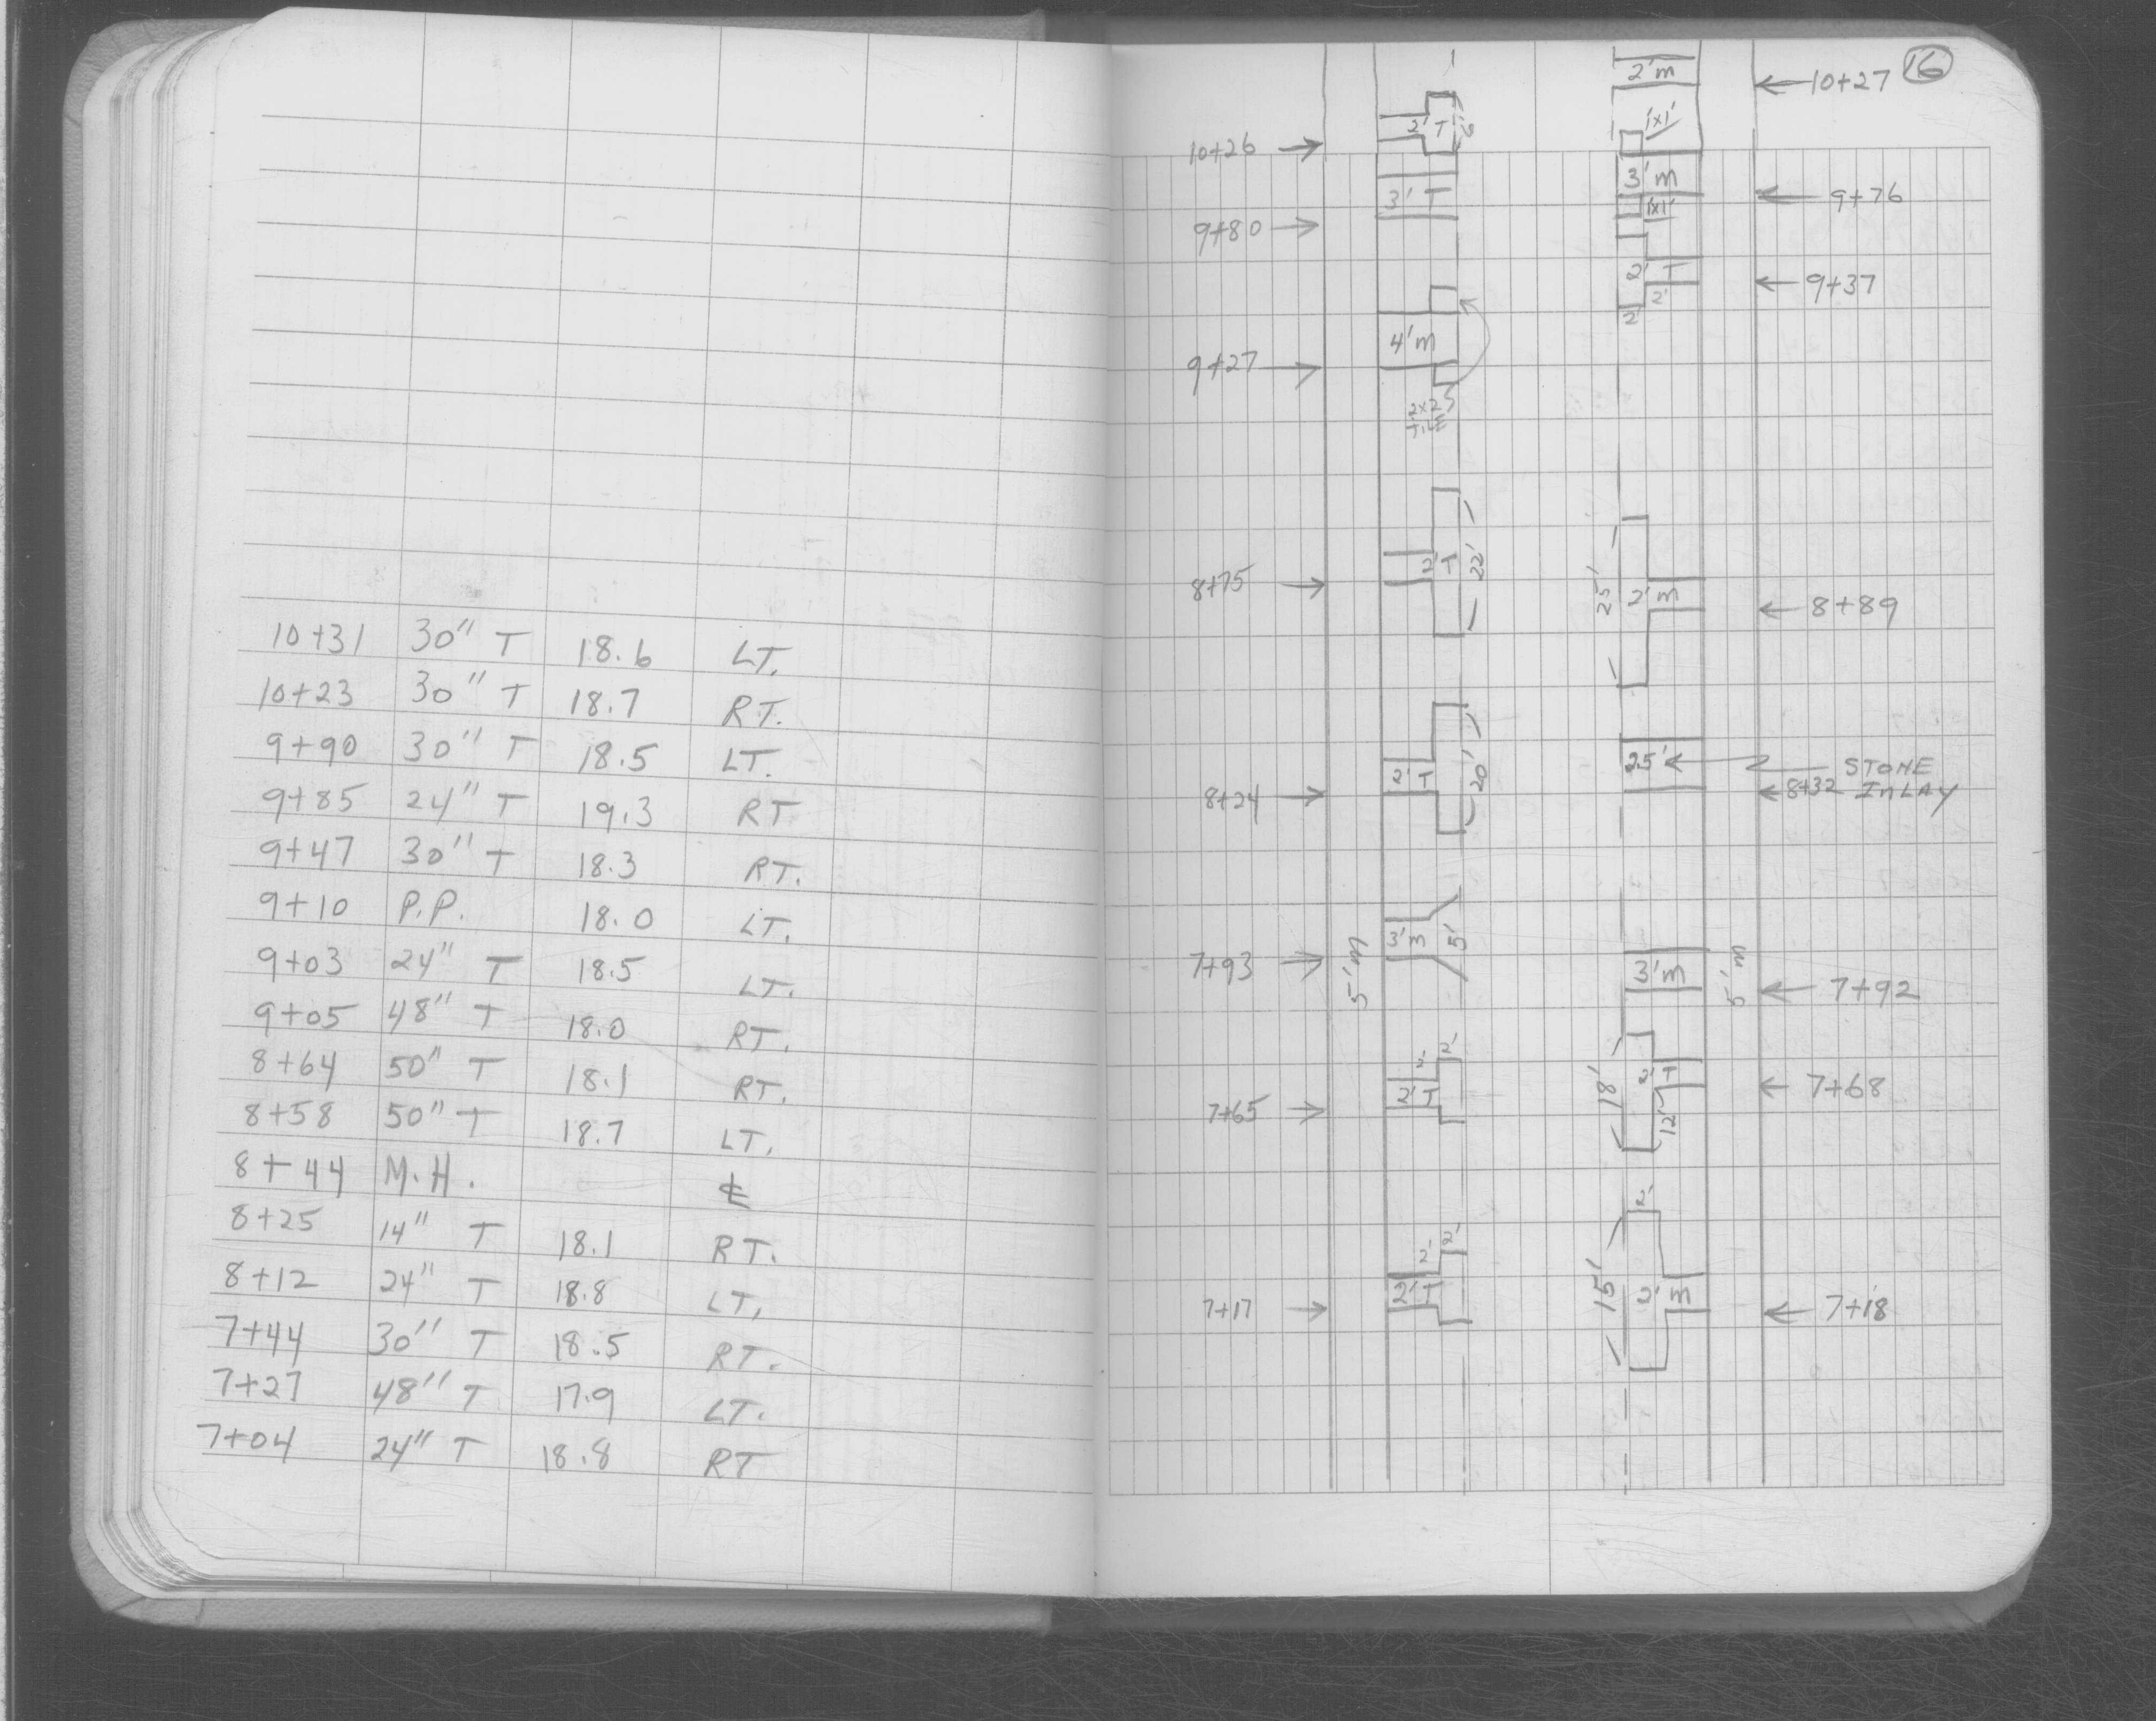 10+31 30" T 18.6 LT.
10+23 30" T 18.7 RT.
9+90 30" T 18.5 LT.
9+85 24" T 19.3 RT
9+47 30" T 18.3 RT.
9+10 P.P. 18.0 LT.
9+03 24" T 18.5 LT.
9+05 48" T 18.0 RT.
8+64 50" T 18.1 RT.
8+58 50" T 18.7 LT.
8+44 M.H. ℄
8+25 14" T 18.1 RT.
8+12 24" T 18.8 LT.
7+44 30" T 18.5 RT.
7+27 48" T 17.9 LT.
7+04 24" T 18.8 RT
16
2'm 10+27
1'x1'
10+26 2' T
3'm 9+76
1x1'
9+80 3' T
2' T 9+37
2'
2'
9+27 4'm
2x2
TILE
8+75 2' T 22'
25' 2'm 8+89
8+24 2' T 20'
25' STONE
8+32 INLAY
7+93 5'm 3'm 5'
3'm 5'm 7+92
2'
2'
7+65 2' T
18' 2' T 7+68
12'
2'
2'
7+17 2' T
2'
15' 2'm 7+18